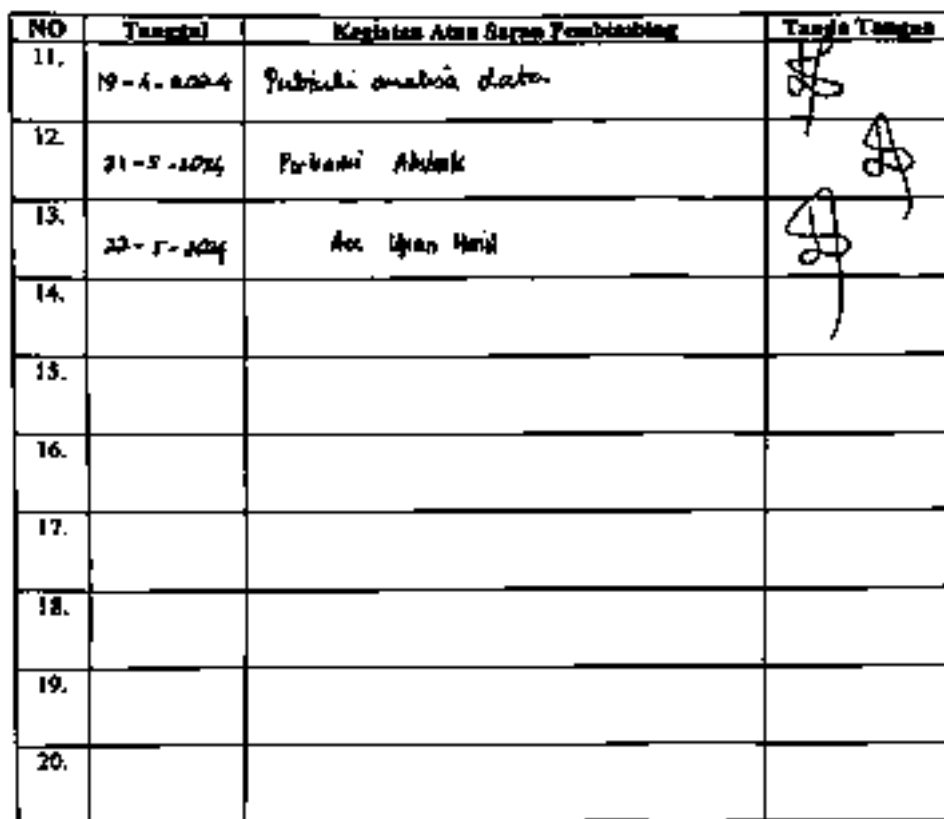 NO Tanggal Kegiatan Atau Saran Pembimbing Tanda Tangan
11.
19-4-2024 Perbaiki analisa data
12.
21-5-2024 Perbaiki Abstrak
13.
22-5-2024 Acc Ujian Hasil
14.
15.
16.
17.
18.
19.
20.